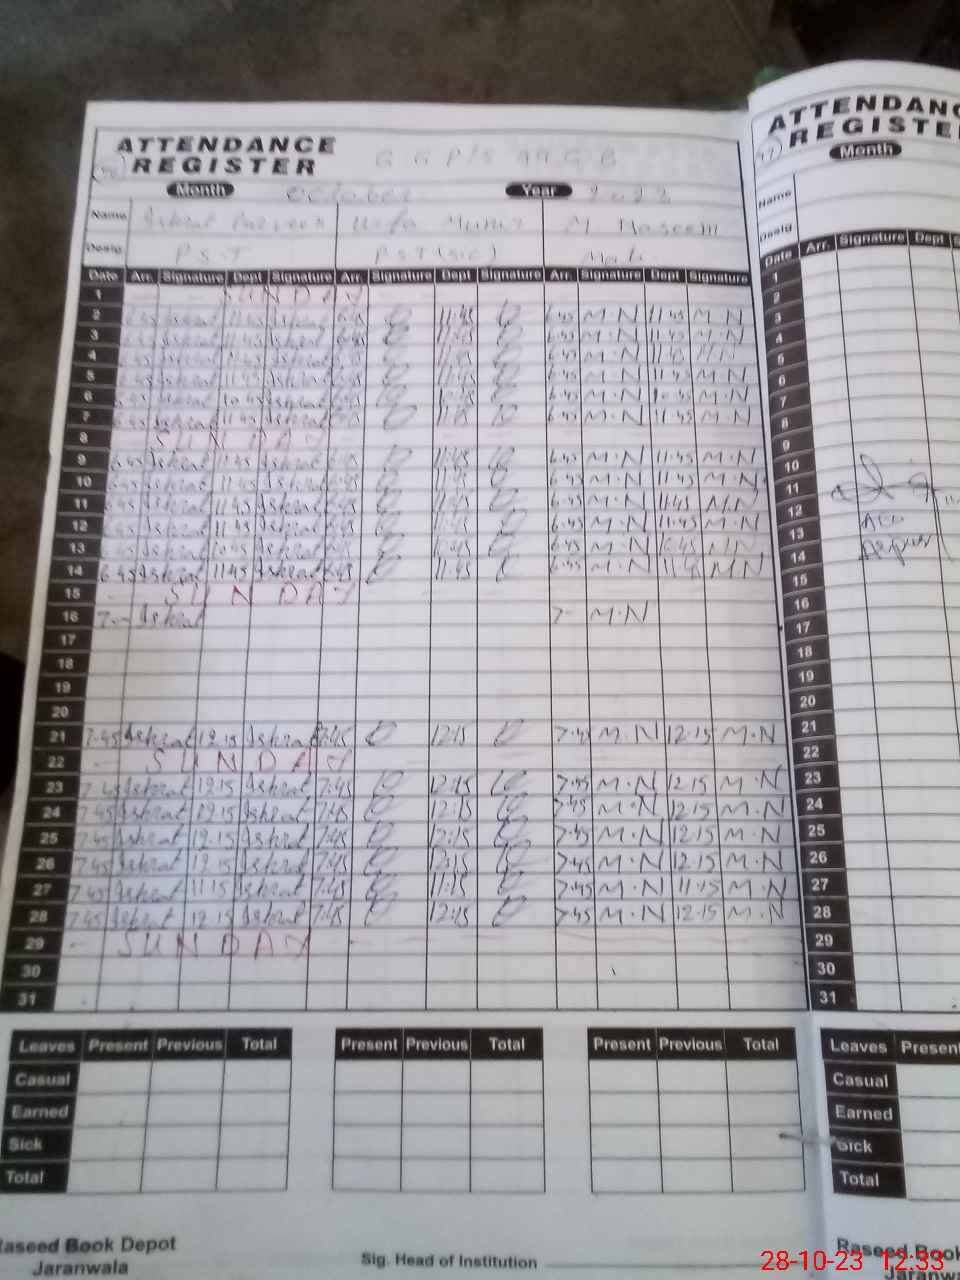 ATTENDANCE REGISTER
G G P/S 99 G B
Month October Year 2023
Name Ishrat Parveen M. Naseem
Desig P.S.T PST (SIC)
Date Arr. Signature Dept Signature Arr. Signature Dept Signature Arr. Signature Dept Signature
1 SUNDAY
2 6:45 Ishrat 11:45 Ishrat 6:45 11:45 6:45 M.N 11:45 M.N
3 6:45 Ishrat 11:45 Ishrat 6:45 11:45 6:45 M.N 11:45 M.N
4 6:45 Ishrat 11:45 Ishrat 6:45 11:45 6:45 M.N 11:45 M.N
5 6:45 Ishrat 11:45 Ishrat 6:45 11:45 6:45 M.N 11:45 M.N
6 6:45 Ishrat 10:45 Ishrat 6:45 10:45 6:45 M.N 10:45 M.N
7 6:45 Ishrat 11:45 Ishrat 6:45 11:45 6:45 M.N 11:45 M.N
8 SUNDAY
9 6:45 Ishrat 11:45 Ishrat 6:45 11:45 6:45 M.N 11:45 M.N
10 6:45 Ishrat 11:45 Ishrat 6:45 11:45 6:45 M.N 11:45 M.N
11 6:45 Ishrat 11:45 Ishrat 6:45 11:45 6:45 M.N 11:45 M.N
12 6:45 Ishrat 11:45 Ishrat 6:45 11:45 6:45 M.N 11:45 M.N
13 6:45 Ishrat 10:45 Ishrat 6:45 10:45 6:45 M.N 10:45 M.N
14 6:45 Ishrat 11:45 Ishrat 6:45 11:45 6:45 M.N 11:45 M.N
15 SUNDAY
16 7-- Ishrat 7- M.N
17
18
19
20
21 7:45 Ishrat 12:15 Ishrat 7:45 12:15 7:45 M.N 12:15 M.N
22 SUNDAY
23 7:45 Ishrat 12:15 Ishrat 7:45 12:15 7:45 M.N 12:15 M.N
24 7:45 Ishrat 12:15 Ishrat 7:45 12:15 7:45 M.N 12:15 M.N
25 7:45 Ishrat 12:15 Ishrat 7:45 12:15 7:45 M.N 12:15 M.N
26 7:45 Ishrat 12:15 Ishrat 7:45 12:15 7:45 M.N 12:15 M.N
27 7:45 Ishrat 11:15 Ishrat 7:45 11:15 7:45 M.N 11:15 M.N
28 7:45 Ishrat 12:15 Ishrat 7:45 12:15 7:45 M.N 12:15 M.N
29 SUNDAY
30
31
Leaves Present Previous Total Present Previous Total Present Previous Total
Casual
Earned
Sick
Total
Raseed Book Depot
Jaranwala
Sig. Head of Institution
ATTENDANC
REGISTE
Month
Name
Desig
Date Arr. Signature Dept
1
2
3
4
5
6
7
8
9
10
11
12
13
14
15
16
17
18
19
20
21
22
23
24
25
26
27
28
29
30
31
Leaves Present
Casual
Earned
Sick
Total
Raseed Book
Jaranwala
28-10-23 12:33